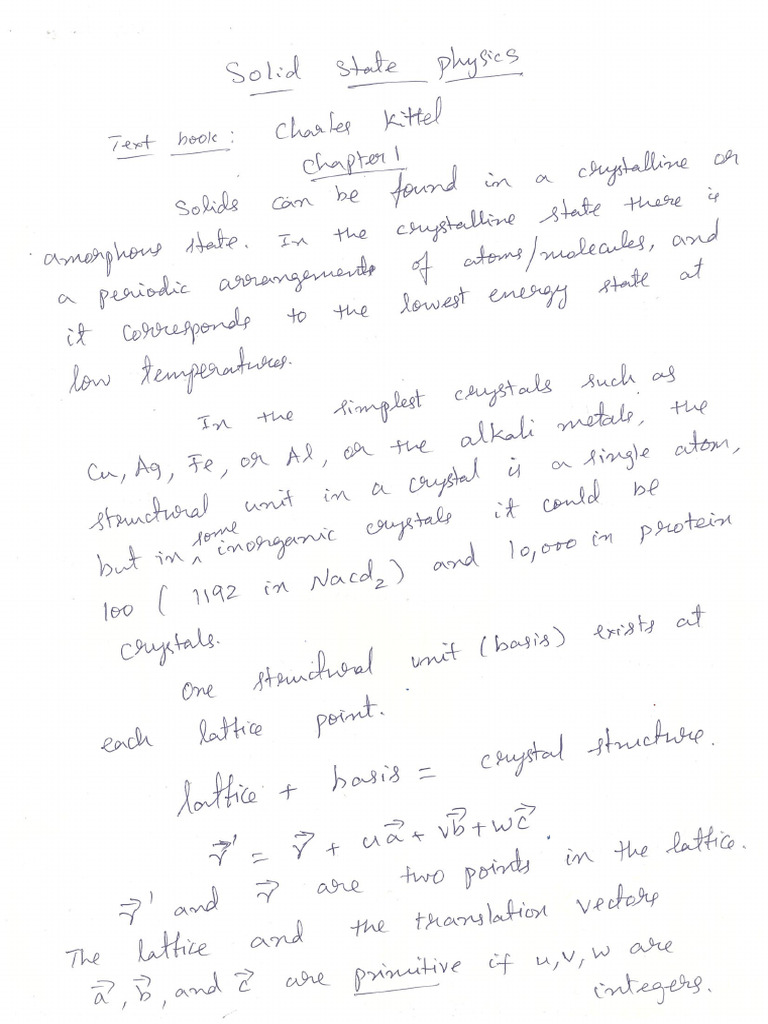 Solid state physics
Text book: Charles Kittel
Chapter 1
Solids can be found in a crystalline or
amorphous state. In the crystalline state there is
a periodic arrangements of atoms/molecules, and
it corresponds to the lowest energy state at
low temperatures.
In the simplest crystals such as
Cu, Ag, Fe, or Al, or the alkali metals, the
structural unit in a crystal is a single atom,
but in some inorganic crystals it could be
100 ( 1192 in Nacd₂) and 10,000 in protein
crystals.
One structural unit (basis) exists at
each lattice point.
lattice + basis = crystal structure.
r⃗' = r⃗ + ua⃗ + vb⃗ + wc⃗.
r⃗' and r⃗ are two points in the lattice.
The lattice and the translation vectors
a⃗, b⃗, and c⃗ are primitive if u, v, w are
integers.